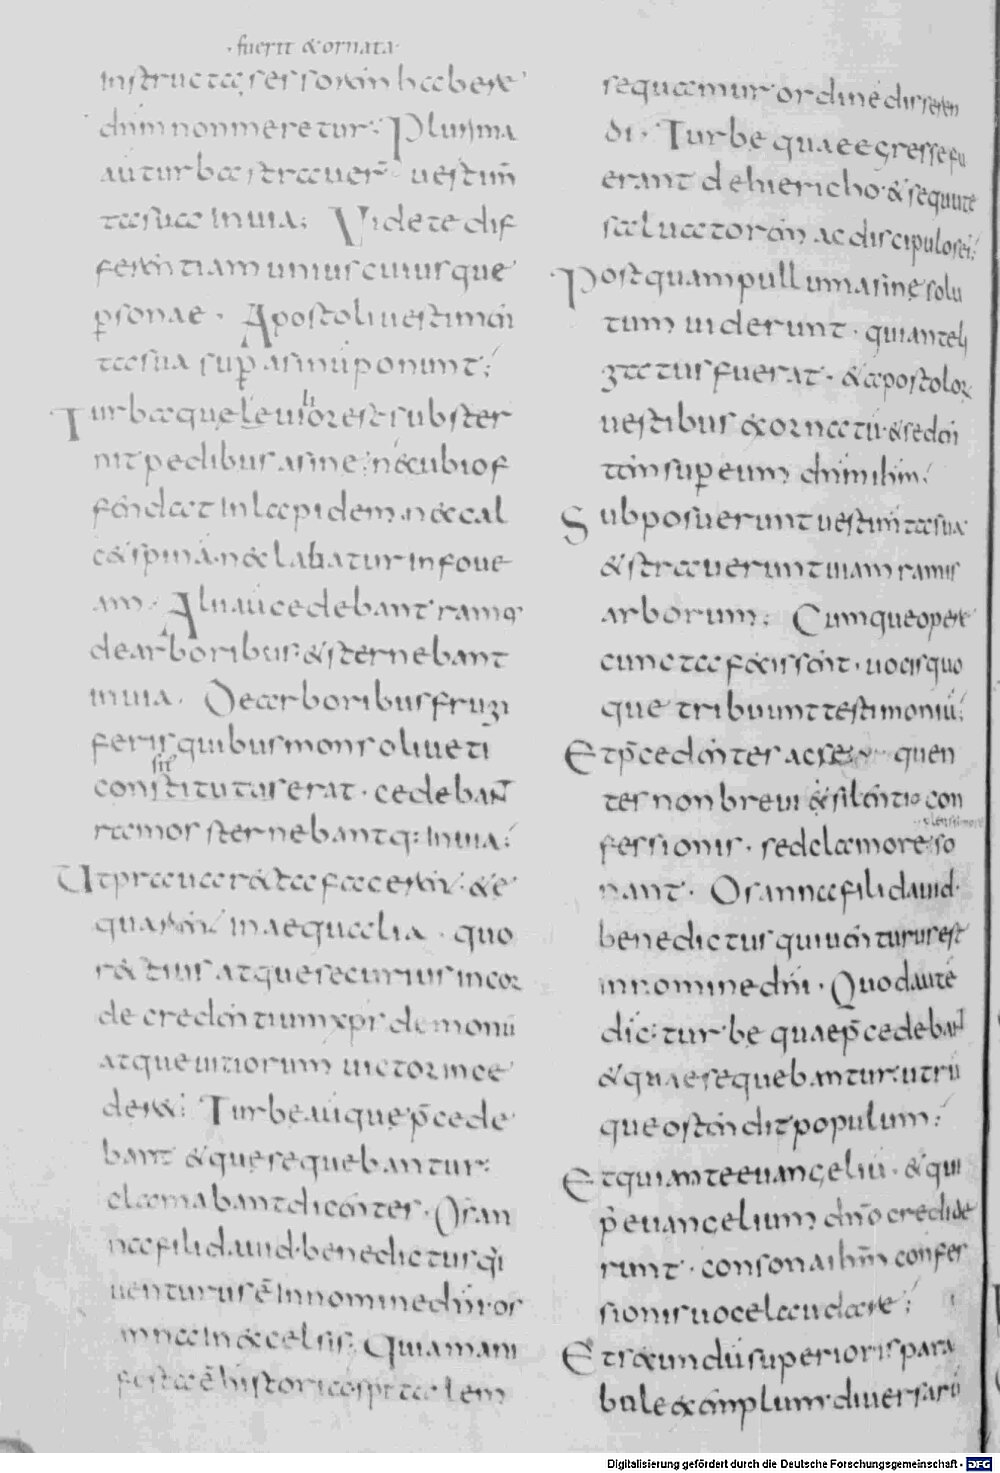 ·fuerit & ornata·
instructa, sessorem habere
dnm non meretur:· Plurima
aũ turba strauer̃ uestim̃
ta sua in uia; Videte dif
ferentiam uniuscuiusque
p̱sonae · Apostoli uestimen
ta sua sup̱ asinũ ponunt;
Turba que leuior est subster
nit pedibus asine; ne ubi of
fendat in lapidem. ne cal
c& spinã. ne labatur in foue
am· Alii aũ cedebant ramos
de arboribus; & sternebant
in uia. De arboribus frugi
feris quibus mons oliueti
constitutus erat· cedebant
ramos sternebantq: in uia;
Ut praua recta facerent· & e
qua in aequalia · quo
r&tius atque securius in cor
de credentium xps demonũ
atque uitiorum uictor ince
der&; Turbe aũ que p̄cede
bant & que sequebantur;
clamabant dicentes· Osan
na fili dauid· benedictus qui
uenturus ẽ in nomine dñi· os
anna in excelsis; Quia mani
festa ẽ historia spitalem
sequamur ordinẽ disseren
di· Turbe quae egresse fu
erant de hiericho· & sequute
saluatorem ac discipulos ei;
Postquam pullum asine solu
tum uiderunt· qui ante li
gatus fuerat· & apostolor
uestibus exornatũ· & seden
tem super eum dnm ihm;
Subposuerunt uestim̃ta sua
& strauerunt uiam ramis
arborum; Cumque opere
cuncta fecissent· uocis quo
que tribuunt testimoniũ;
Et p̄cedentes ac sequen
tes non breui & silentio con
fessionis· sed clamore so
nant· Osanna fili dauid·
benedictus qui uenturus est
in nomine dñi· Quod autẽ
dic: turbe quae p̄cedebant
& quae sequebantur: utrũ
que ostendit populum;
Et qui ante euangeliũ· & qui
p̊ euangelium dño credide
runt· consona ihm̃ confes
sionis uoce laudare;
Et secundũ superioris para
bule exemplum diuersarũ
Digitalisierung gefördert durch die Deutsche Forschungsgemeinschaft - DFG